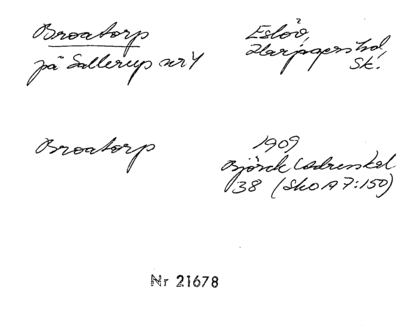 Broatorp
på Sallerup nr 4
Eslöv,
Harjagers hd,
Sk.
Broatorp
1909
Björck Adresskal
38 (Sko A 7:150)
Nr 21678